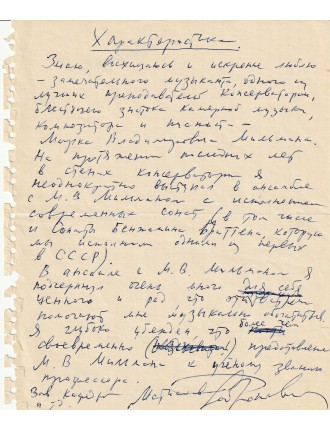 Характеристика.
Знаю, восхищаюсь и искренне люблю
– замечательного музыканта, одного из
лучших преподавателей Консерватории,
блестящего знатока камерной музыки,
композитора и пианиста –
Марка Владимировича Мильмана.
На протяжении последних лет
в стенах консерватории я
неоднократно выступал в ансамбле
с М.В. Мильманом с исполнением
современных сонат (в том числе
и Сонаты Бенжамина Бриттена, которую
мы исполнили одними из первых
в СССР).
В ансамбле с М.В. Мильманом я
подчерпнул очень много для себя
ценного и рад что эти
помогают мне музыкально обогатиться.
Я глубоко убежден, что более чем
своевременно представление
М.В. Мильмана к учёному званию
профессора.
Зав. Кафедрой Мстислав Ростропович